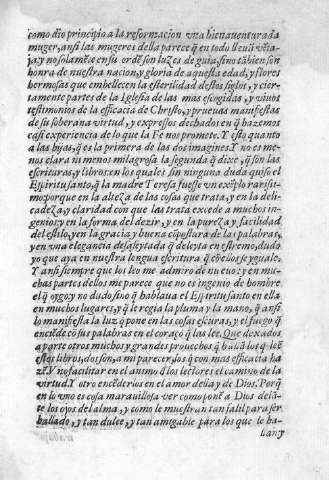 como dio principio a la reformacion vna bienauenturada
muger, ansi las mugeres della parece q̃ en todo lleuã vẽta-
ja, y no solamẽte en su ordẽ son luzes de guia, sino tãbien son
honra de nuestra nacion, y gloria de aquesta edad, y flores
hermosas que embellecen la esterilidad destos siglos, y cier-
tamente partes de la Iglesia de las mas escogidas, y viuos
testimonios de la eficacia de Christo, y prueuas manifiestas
de su soberana virtud, y expressos dechados en q̃ hazemos
casi experiencia de lo que la Fe nos promete. Y esto quanto
a las hijas, q̃ es la primera de las dos imagines. Y no es me-
nos clara ni menos milagrosa la segunda q̃ dixe, q̃ son las
escrituras, y libros, en los quales sin ninguna duda quiso el
Espiritu santo, q̃ la madre Teresa fuesse vn exẽplo rarissi-
mo: porque en la alteza de las cosas que trata, y en la deli-
cadeza, y claridad con que las trata excede a muchos in-
genios: y en la forma del dezir, y en la pureza y facilidad
del estilo, y en la gracia y buena cõpostura de las palabras,
y en vna elegancia desafeytada q̃ deleyta en estremo, dudo
yo que aya en nuestra lengua escritura q̃ cõ ellos se yguale.
Y ansi siempre que los leo me admiro de nueuo: y en mu-
chas partes dellos me parece que no es ingenio de hombre
el q̃ oygo: y no dudo sino q̃ hablaua el Espiritu santo en ella
en muchos lugares, y q̃ le regia la pluma y la mano, q̃ ansi
lo manifiesta la luz q̃ pone en las cosas escuras, y el fuego q̃
enciẽde cõ sus palabras en el coraçõ q̃ las lee. Que dexados
a parte otros muchos y grandes prouechos q̃ hallã los q̃ leẽ
estos libros, dos son, a mi parecer, los q̃ con mas eficacia ha-
zẽ. Vno facilitar en el animo d̃ los lectores el camino de la
virtud. Y otro encẽderlos en el amor della y de Dios. Porq̃
en lo vno es cosa marauillosa ver como ponẽ a Dios dela-
te los ojos del alma, y como le muestran tan facil para ser
hallado, y tan dulce, y tan amigable para los que le ha-
llan: y